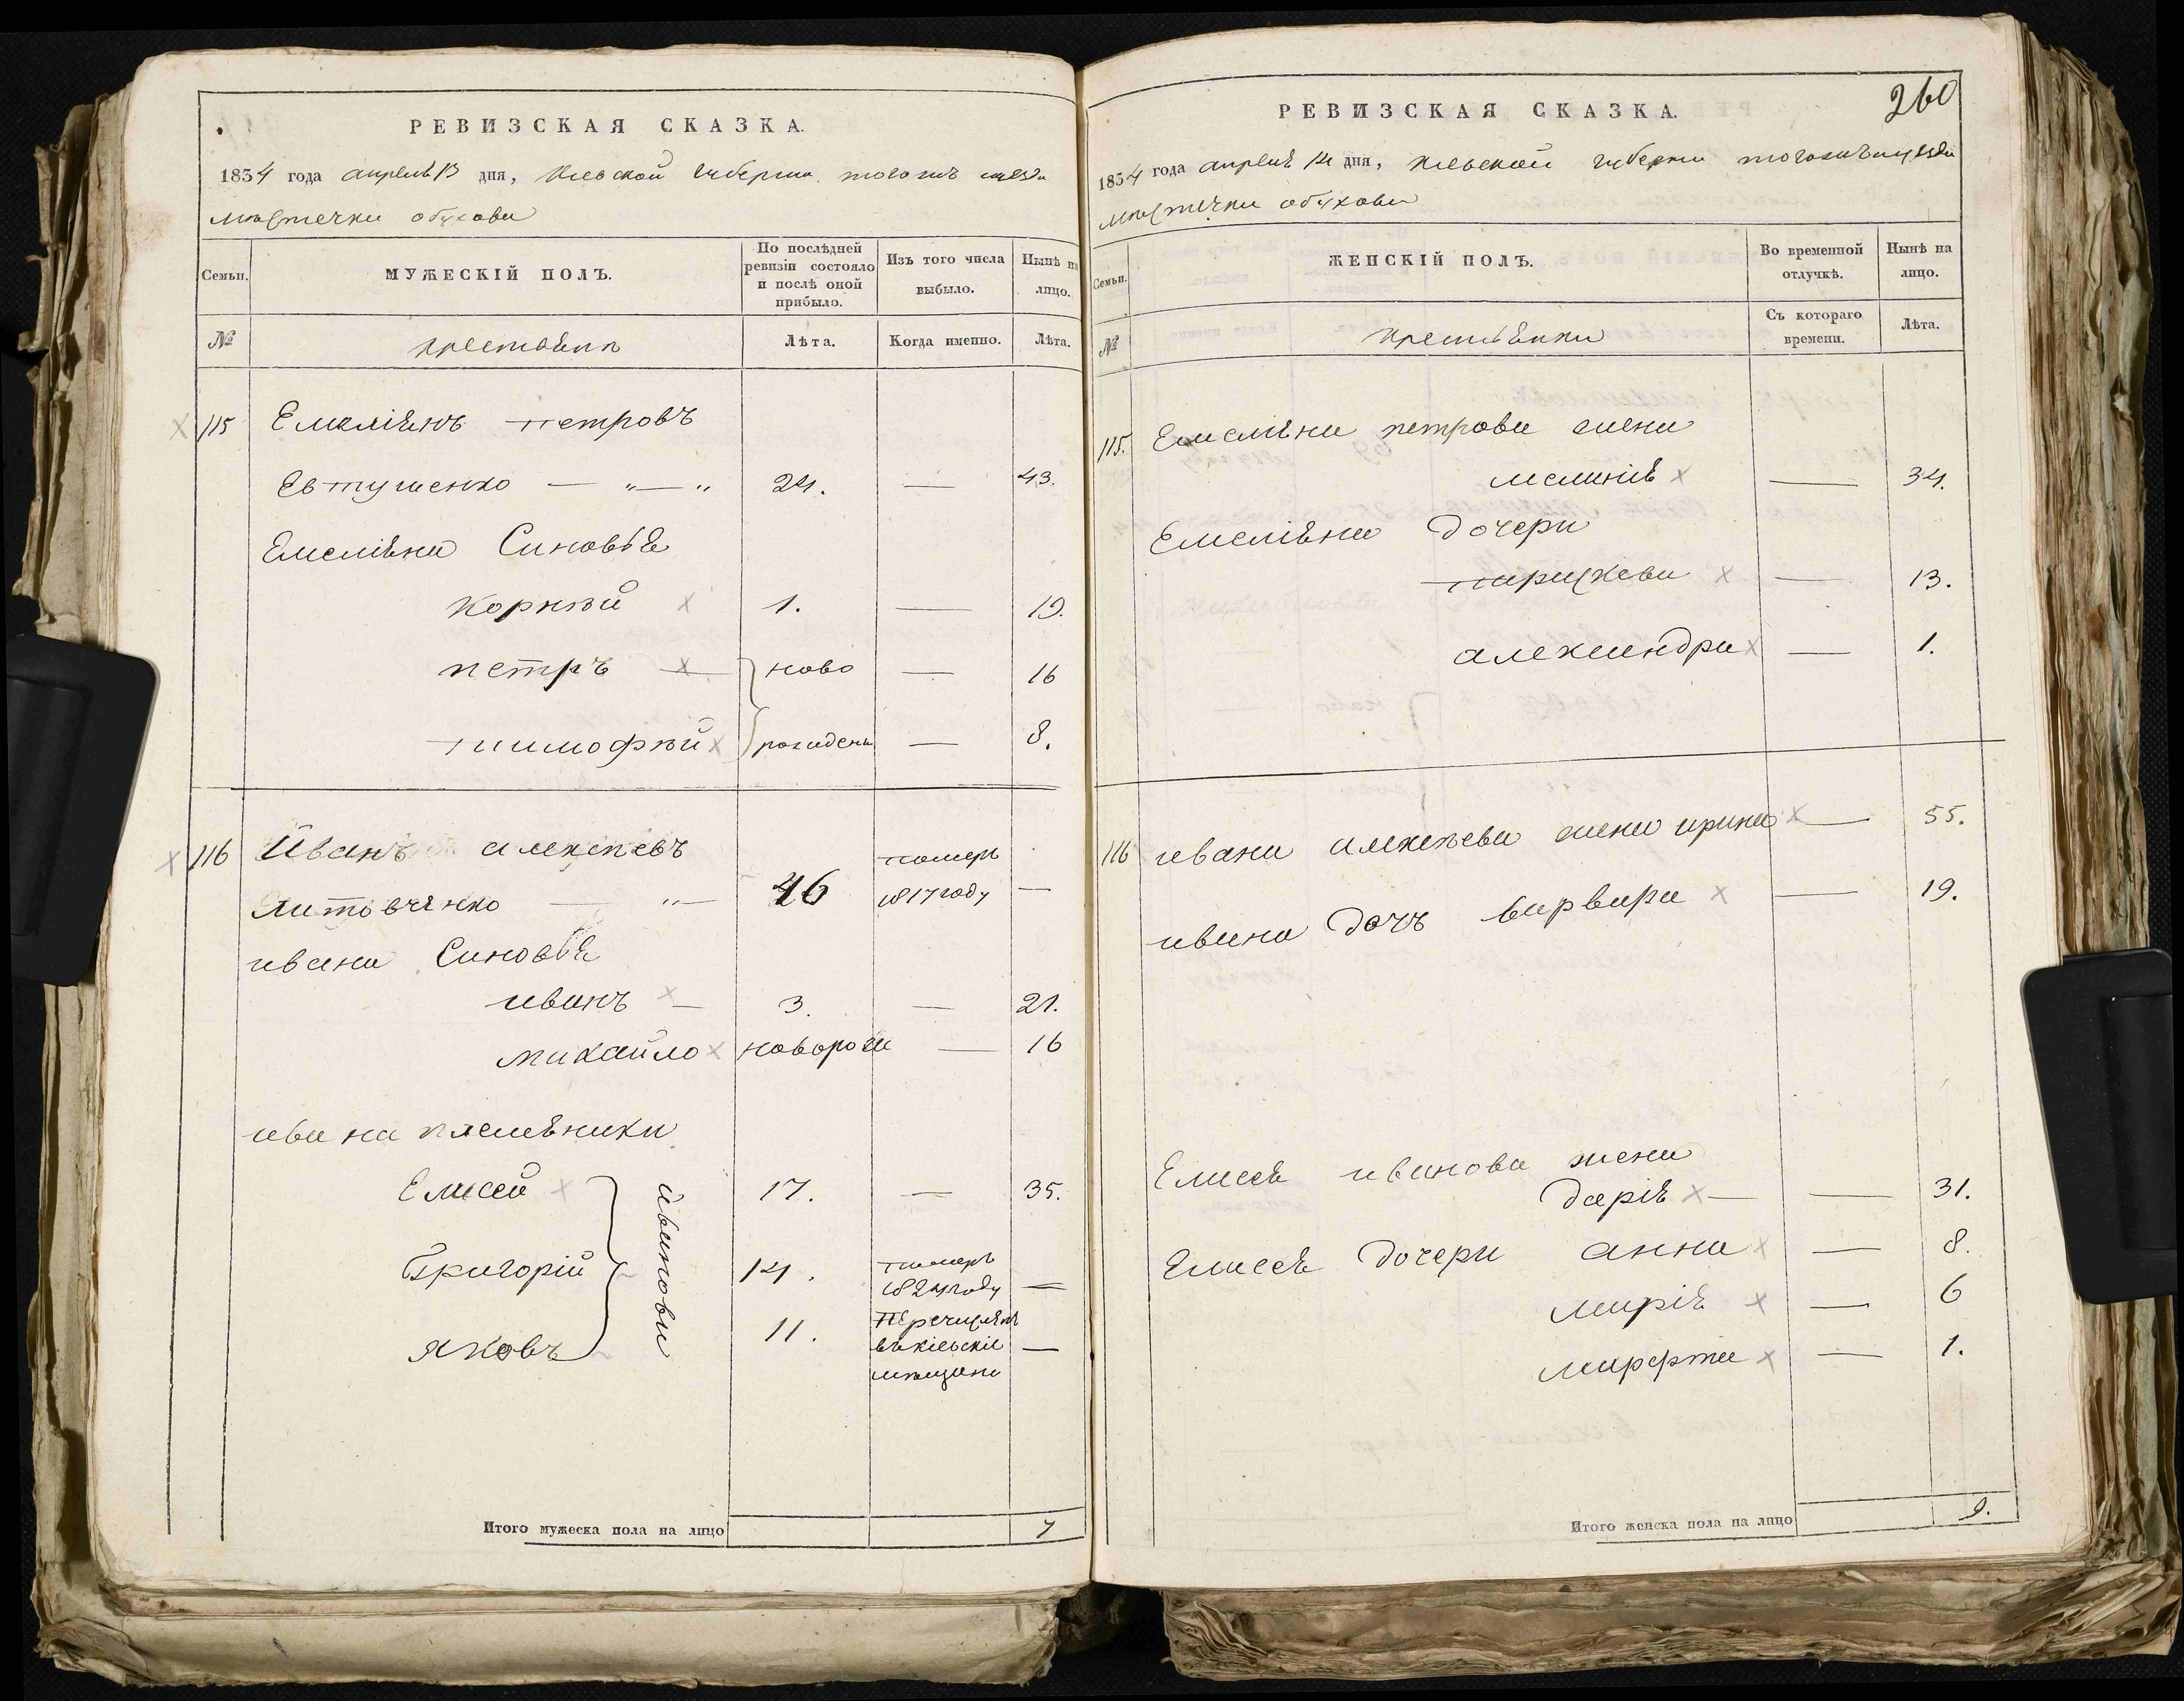 РЕВИЗСКАЯ СКАЗКА.
1834 года апреля 13 дня, Киевской губернии тогожъ уезда
местечка обухова
Семьи.
МУЖЕСКІЙ ПОЛЪ.
По послѣдней ревизіи состояло и послѣ оной прибыло.
Изъ того числа выбыло.
Нынѣ на лицо.
№
крестьяня
Лѣта.
Когда именно.
Лѣта.
115 Емеліянъ петровъ
Евтушенко — „ — „ 24. — 43.
Емеліяна Синовья
корнѣй 1. — 19.
петръ — ново — 16
тимофѣй рожденъ — 8.
116 Иванъ алексѣевъ померъ
литовченко — „ — 46 1817 году —
ивана Синовья
иванъ — 3. — 21.
михайло новорож — 16
ивана племѣники
Елисей 17. — 35.
Григорій 14. померъ
1824 году —
Яковъ 11. Перечисленъ
въ кіевскіе —
мѣщане
ивановы
Итого мужеска пола на лицо 7
260
РЕВИЗСКАЯ СКАЗКА.
1834 года апреля 14 дня, Киевской губерни тогожъ уезда
местечка обухова
Семьи.
ЖЕНСКІЙ ПОЛЪ.
Во временной отлучкѣ.
Нынѣ на лицо.
№
крестьянки
Съ котораго времени.
Лѣта.
115. Емеляна петрова жена
меланія — 34.
Емеліяна дочери
парискева — 13.
александра — 1.
116 ивана алексѣева жена ирина — 55.
ивана дочъ варвара — 19.
Елисея иванова жена
дарія — — 31.
Елисея дочери анна — 8.
марія — 6
марфта — 1.
Итого женска пола на лицо 9.